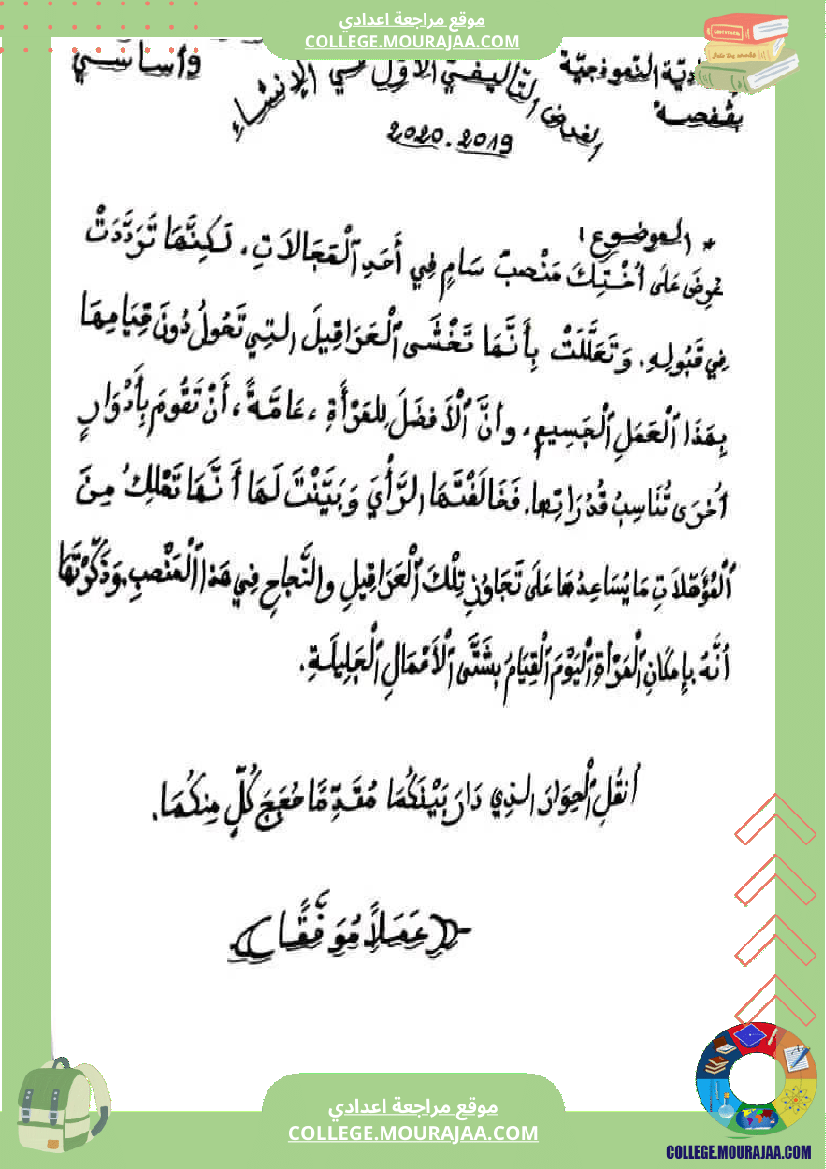 موقع مراجعة اعدادي
COLLEGE.MOURAJAA.COM
النموذجيّة
بقفصة
الفرض التّأليفيّ الأوّل في الإنشاء
وأساسي
2020.2019
* الموضوع:
عُرِضَ عَلَى أُخْتِكَ مَنْصِبٌ سَامٍ فِي أَحَدِ ٱلْمَجَالَاتِ، لَكِنَّهَا تَرَدَّدَتْ
فِي قَبُولِهِ. وَتَعَلَّلَتْ بِأَنَّهَا تَخْشَى ٱلْعَرَاقِيلَ التِي تَحُولُ دُونَ قِيَامِهَا
بِهَذَا ٱلْعَمَلِ ٱلْجَسِيمِ، وأنَّ ٱلْأَفضَلَ لِلمَرْأَةِ، عَامَّةً، أَنْ تَقُومَ بِأَدْوَارٍ
أُخْرَى تُنَاسِبُ قُدُرَاتِها. فَخَالَفْتَهَا الرَّأْيَ وَبَيَّنْتَ لَهَا أَنَّهَا تَمْلِكُ مِنَ
ٱلْمُؤَهِّلَاتِ مَا يُسَاعِدُهَا عَلَى تَجَاوُزِ تِلْكَ ٱلْعَرَاقِيلِ والنَّجاحِ فِي هَذا ٱلْمَنْصِبِ وَذَكَّرْتَهَا
أنَّهُ بِإِمكَانِ ٱلْمَرْأةِ ٱلْيَوْمَ ٱلْقِيَامُ بِشَتَّى ٱلْأَعْمَالِ ٱلْجَلِيلَةِ.
أنقُلِ ٱلْحِوَارَ الذِي دَارَ بَيْنَكُمَا مُقَدِّمًا حُجَجَ كُلٍّ مِنكُمَا.
(عَمَلاً مُوَفَّقًا)
موقع مراجعة اعدادي
COLLEGE.MOURAJAA.COM
COLLEGE.MOURAJAA.COM